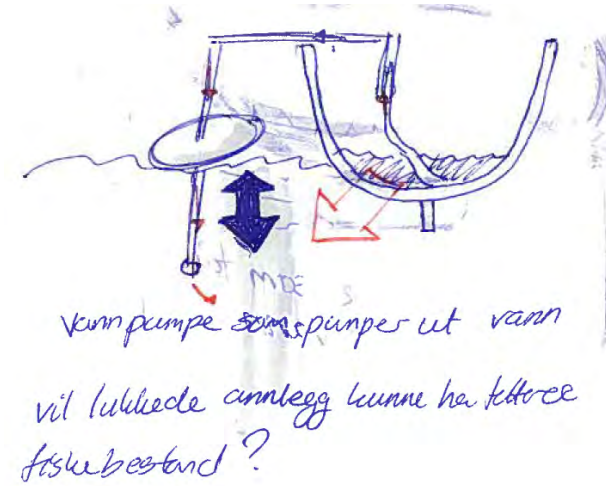 Vannpumpe som pumper ut vann
vil lukkede annlegg kunne ha tettere
fiskebestand?